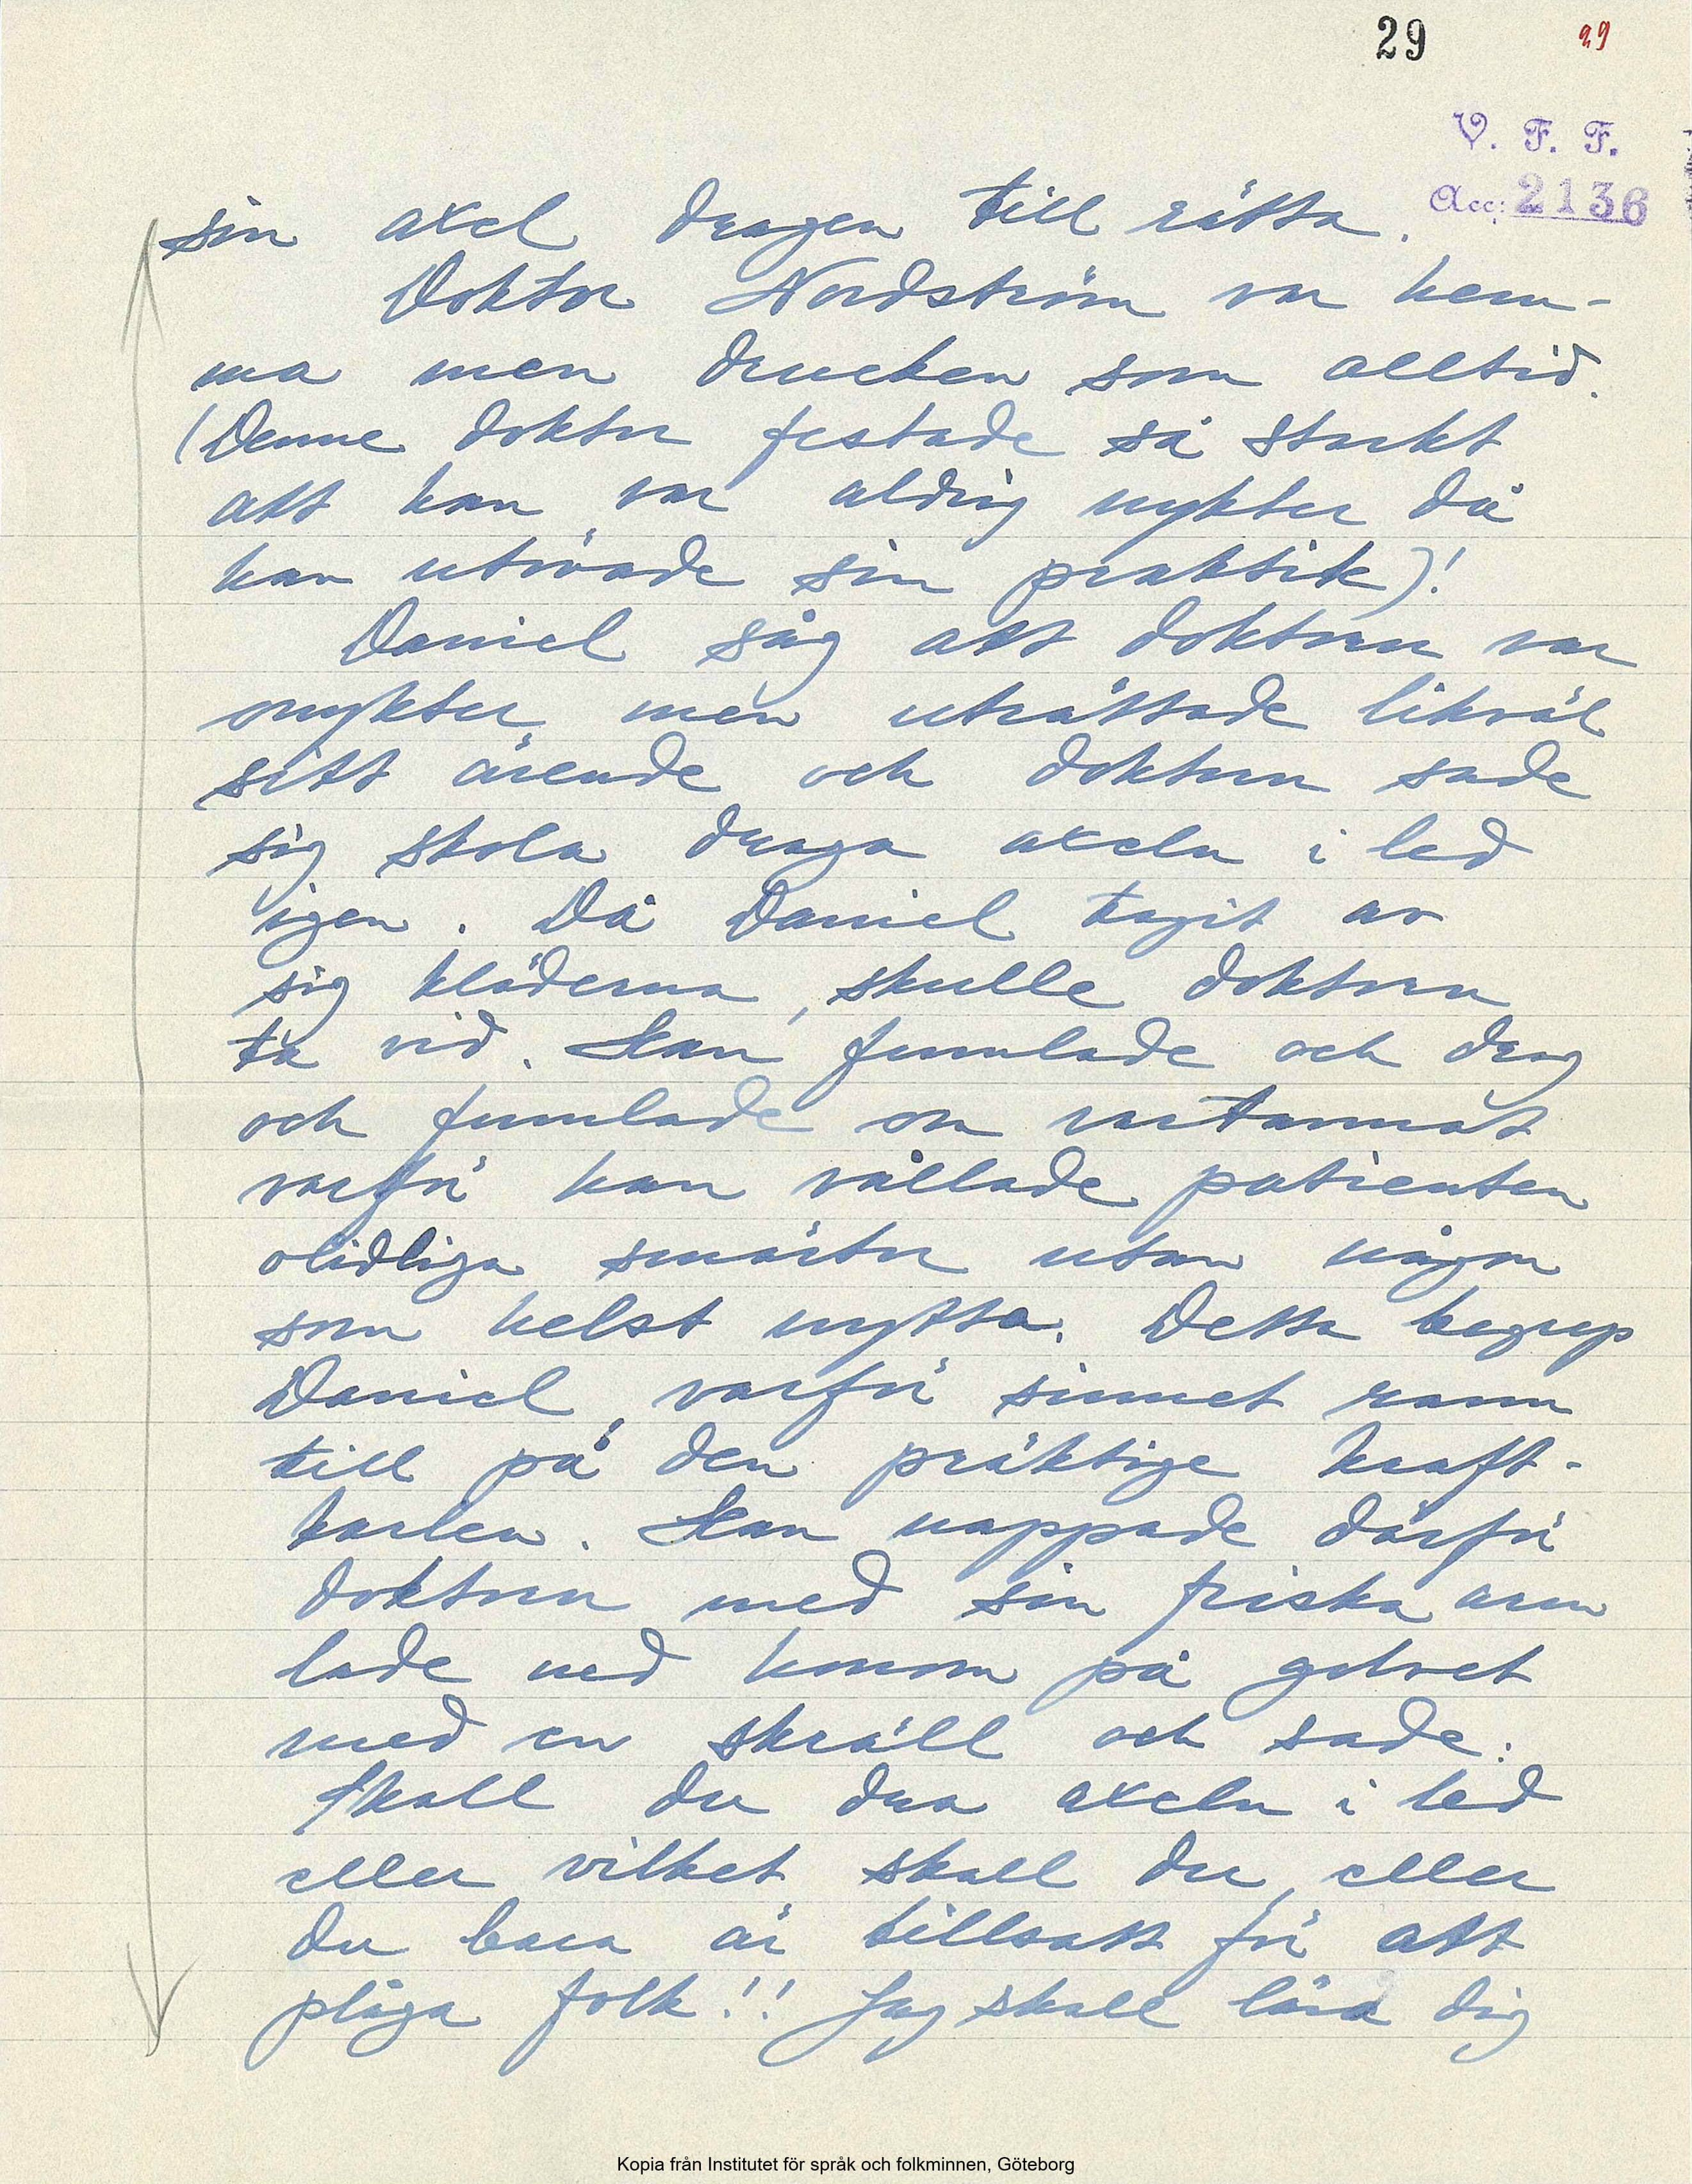 29 29
V. F. F.
Acc: 2136
sin axel dragen till rätta.
Doktor Nordström var hem-
ma men drucken som alltid.
(Denne doktor festade så starkt
att han var aldrig nykter då
han utövade sin praktik)!
Daniel såg att doktorn var
onykter men uträttade likväl
sitt ärende och doktorn sade
sig skola draga axeln i led
igen. Då Daniel tagit av
sig kläderna, skulle doktorn
ta vid. Han fumlade och drog
och fumlade om vartannat
varför han vållade patienten
olidliga smärtor utan någon
som helst nytta. Detta begrep
Daniel, varför sinnet rann
till på den präktige kraft-
karlen. Han nappade därför
doktorn med sin friska arm
lade ned honom på golvet
med en skräll och sade:
Skall du dra axeln i led
eller vilket skall du, eller
du bara är tillsatt för att
plåga folk!! Jag skall lära dig
Kopia från Institutet för språk och folkminnen, Göteborg